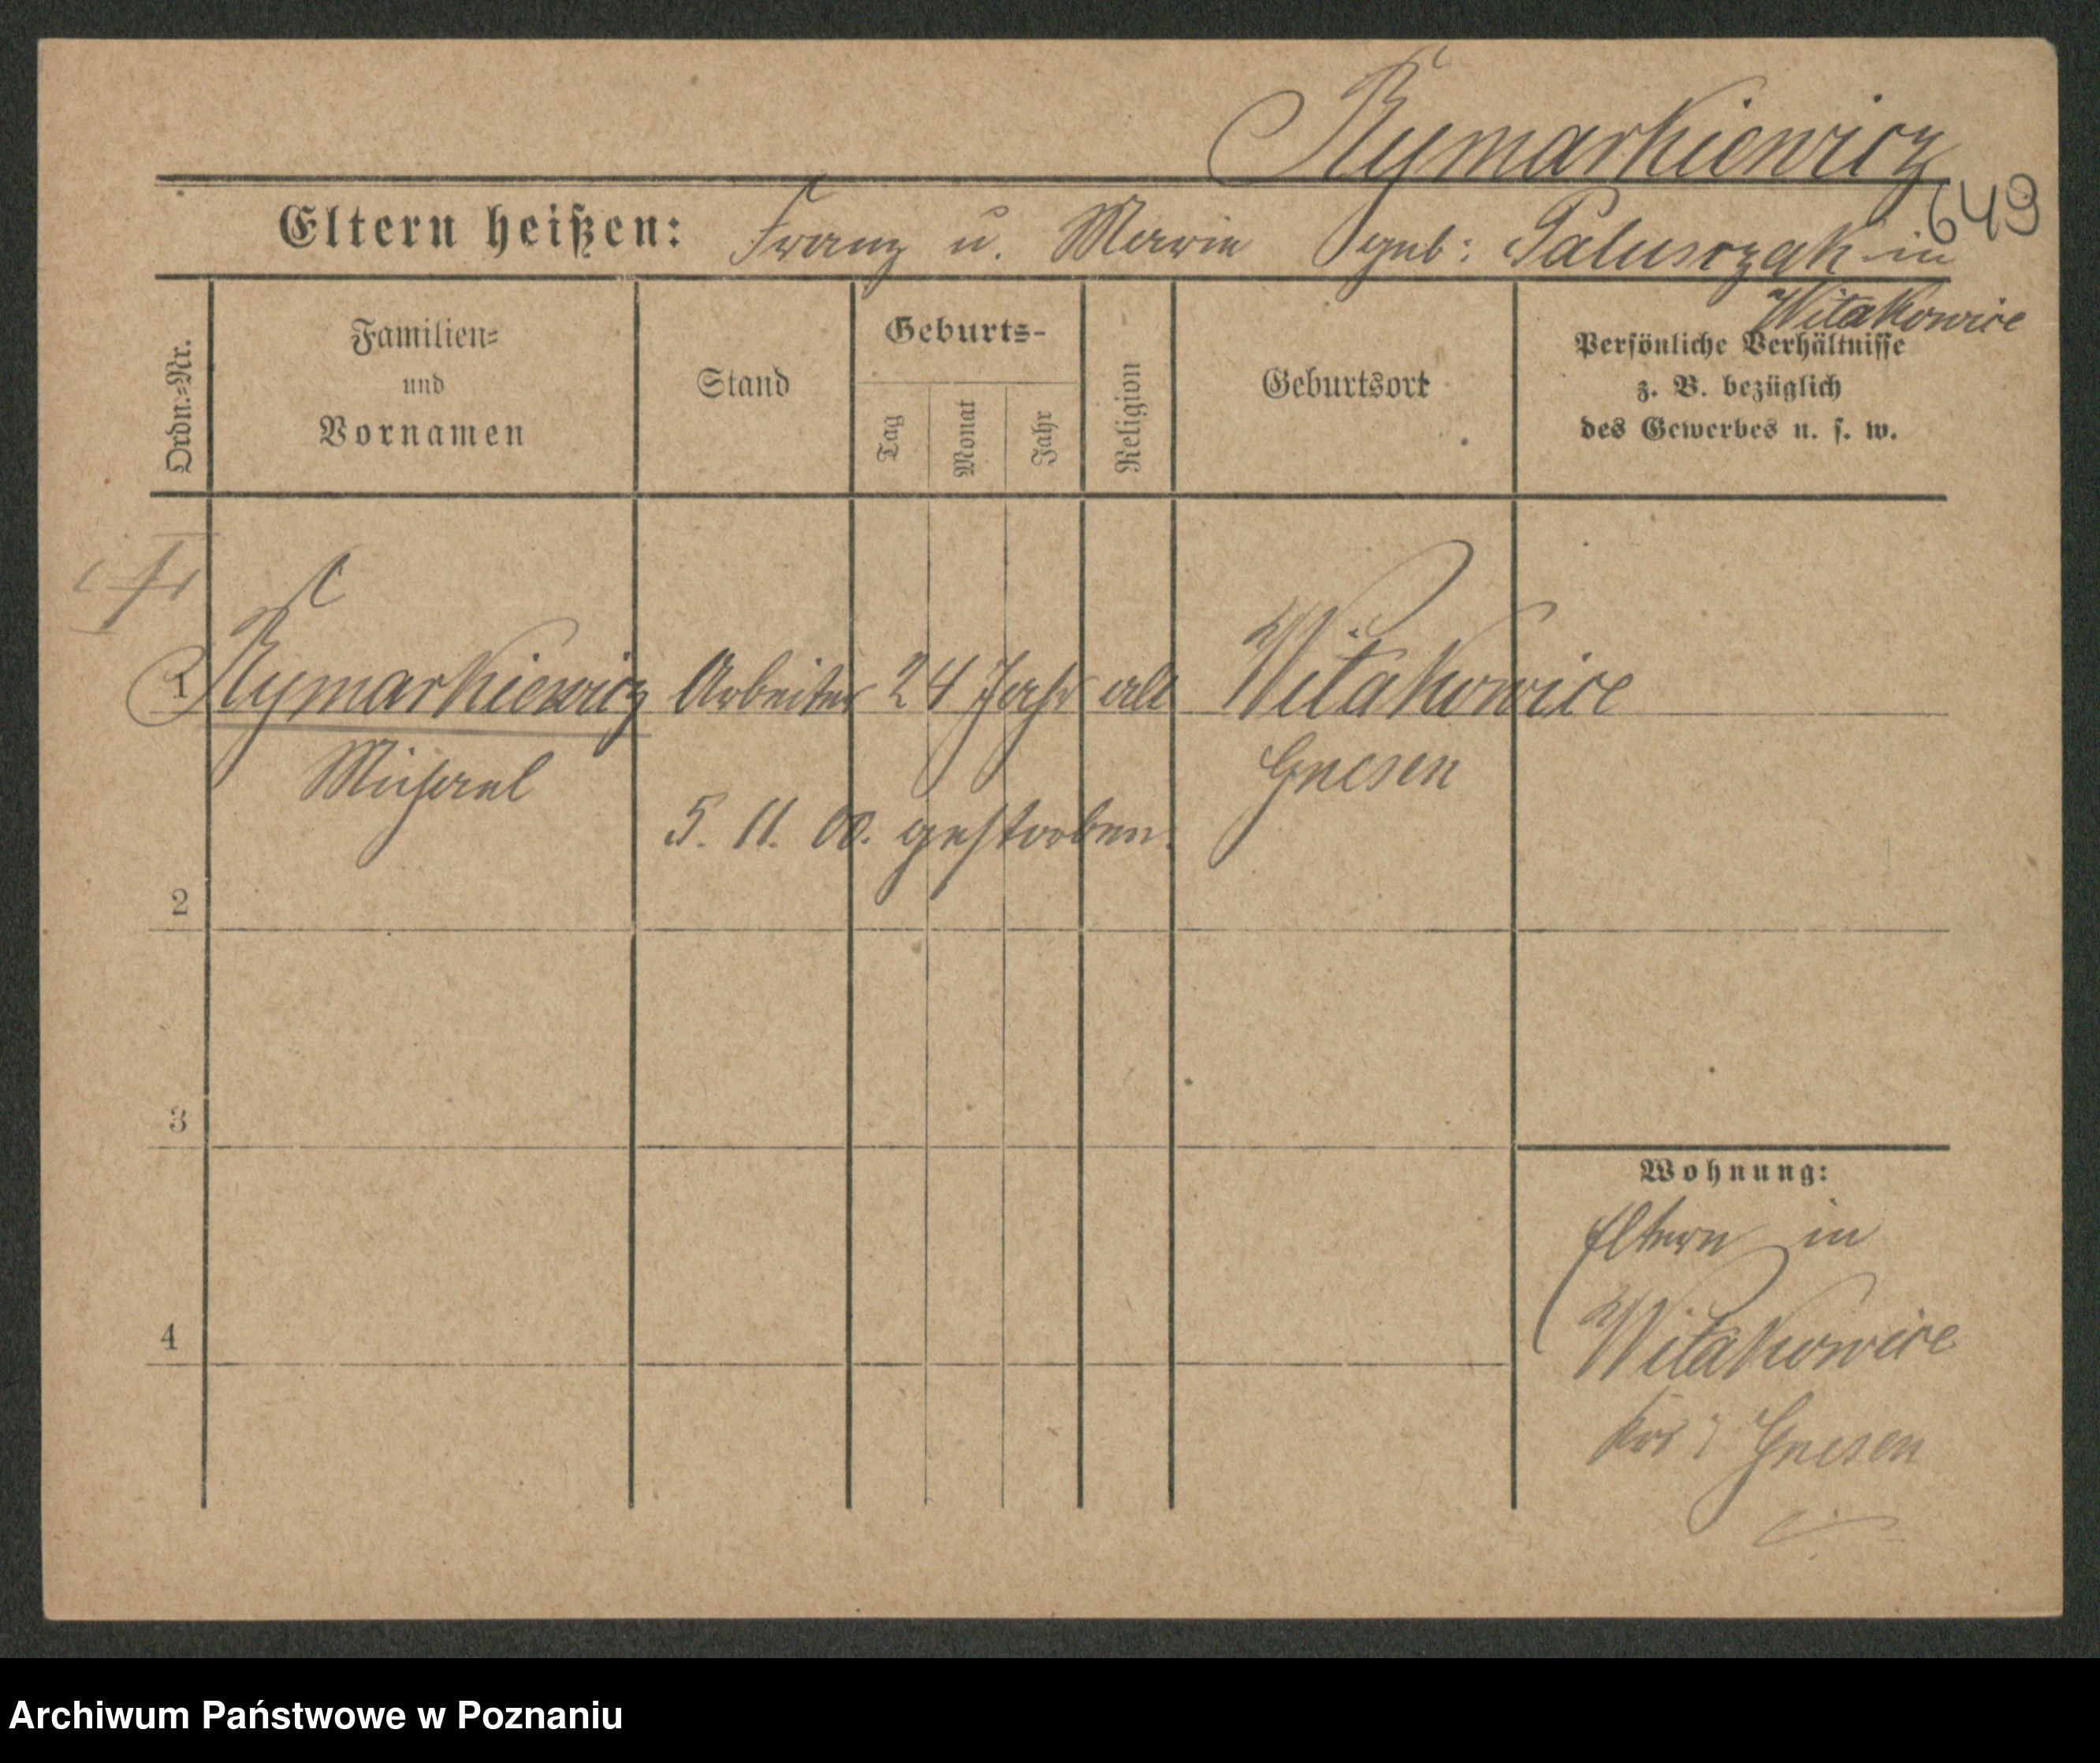 Rymarkiewicz
649
Eltern heißen: Franz u. Marie geb: Palusczak in
Witakowice
Ordn.-Nr.
Familien-
und
Vornamen
Stand
Geburts-
Tag
Monat
Jahr
Religion
Geburtsort
Persönliche Verhältnisse
z. B. bezüglich
des Gewerbes u. s. w.
1 Rymarkiewicz Arbeiter 24 Jahr alt Witakowice
Michael Gnesen
5. 11. 00. gestorben.
2
3
Wohnung:
Eltern in
4 Witakowice
Krs Gnesen
Archiwum Państwowe w Poznaniu